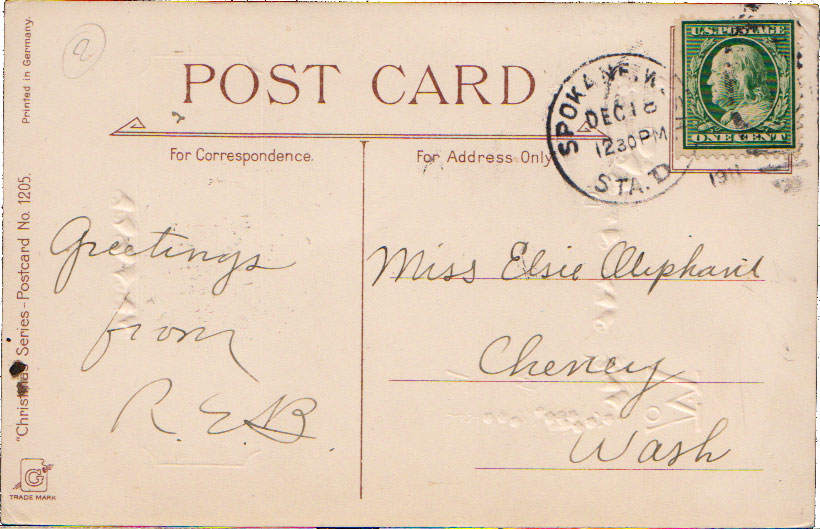 2
POST CARD
For Correspondence.
For Address Only
U.S. POSTAGE
ONE CENT
SPOKANE, WASH
DEC 18
1230 PM
STA. D
1911
Greetings
from
R. E. B.
Miss Elsie Oliphant
Cheney
Wash
Printed in Germany.
"Christmas" Series - Postcard No. 1205.
G
TRADE MARK